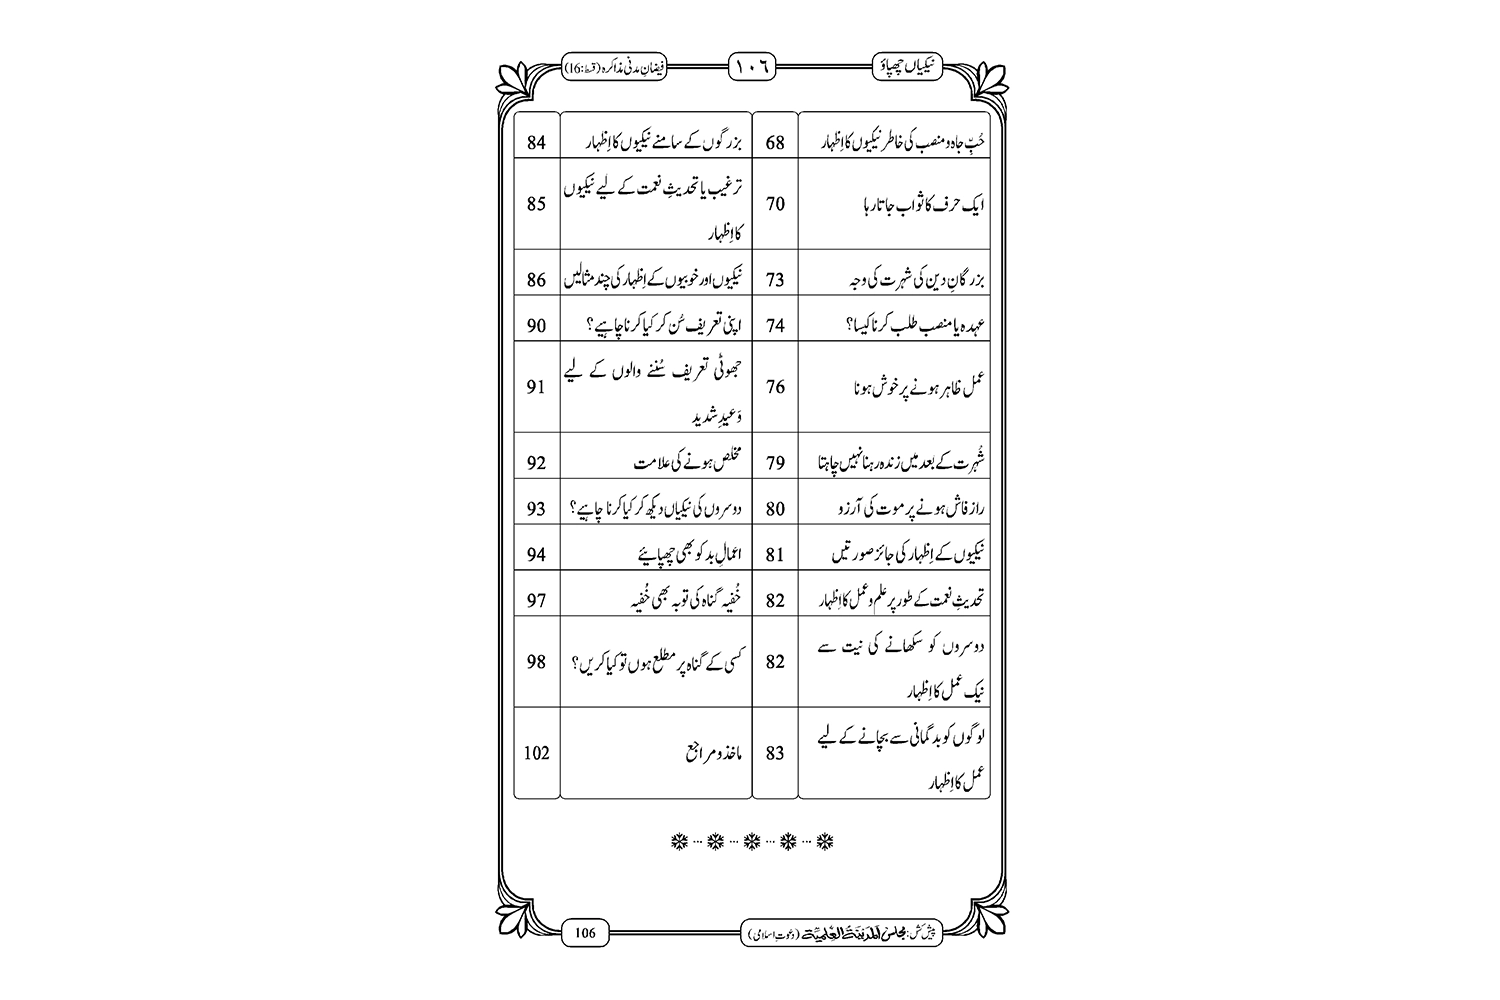 نیکیاں چھپاؤ
١٠٦
فیضانِ مدنی مذاکرہ (قسط:16)
حُبِّ جاہ و منصب کی خاطر نیکیوں کا اِظہار 68
ایک حرف کا ثواب جاتا رہا 70
بزرگانِ دین کی شہرت کی وجہ 73
عہدہ یا منصب طلب کرنا کیسا؟ 74
عمل ظاہر ہونے پر خوش ہونا 76
شُہرت کے بعد میں زندہ رہنا نہیں چاہتا 79
راز فاش ہونے پر موت کی آرزو 80
نیکیوں کے اِظہار کی جائز صورتیں 81
تحدیثِ نعمت کے طور پر علم و عمل کا اِظہار 82
دوسروں کو سکھانے کی نیت سے
نیک عمل کا اِظہار 82
لوگوں کو بدگمانی سے بچانے کے لیے
عمل کا اِظہار 83
بزرگوں کے سامنے نیکیوں کا اِظہار 84
ترغیب یا تحدیثِ نعمت کے لیے نیکیوں
کا اِظہار 85
نیکیوں اور خوبیوں کے اِظہار کی چند مثالیں 86
اپنی تعریف سُن کر کیا کرنا چاہیے؟ 90
جھوٹی تعریف سُننے والوں کے لیے
وَعیدِ شدید 91
مخلص ہونے کی علامت 92
دوسروں کی نیکیاں دیکھ کر کیا کرنا چاہیے؟ 93
اعمالِ بد کو بھی چھپائیے 94
خُفیہ گناہ کی توبہ بھی خُفیہ 97
کسی کے گناہ پر مطلع ہوں تو کیا کریں؟ 98
ماخذ و مراجع 102
پیش کش: مجلس المدینۃ العلمیۃ (دعوتِ اسلامی)
106